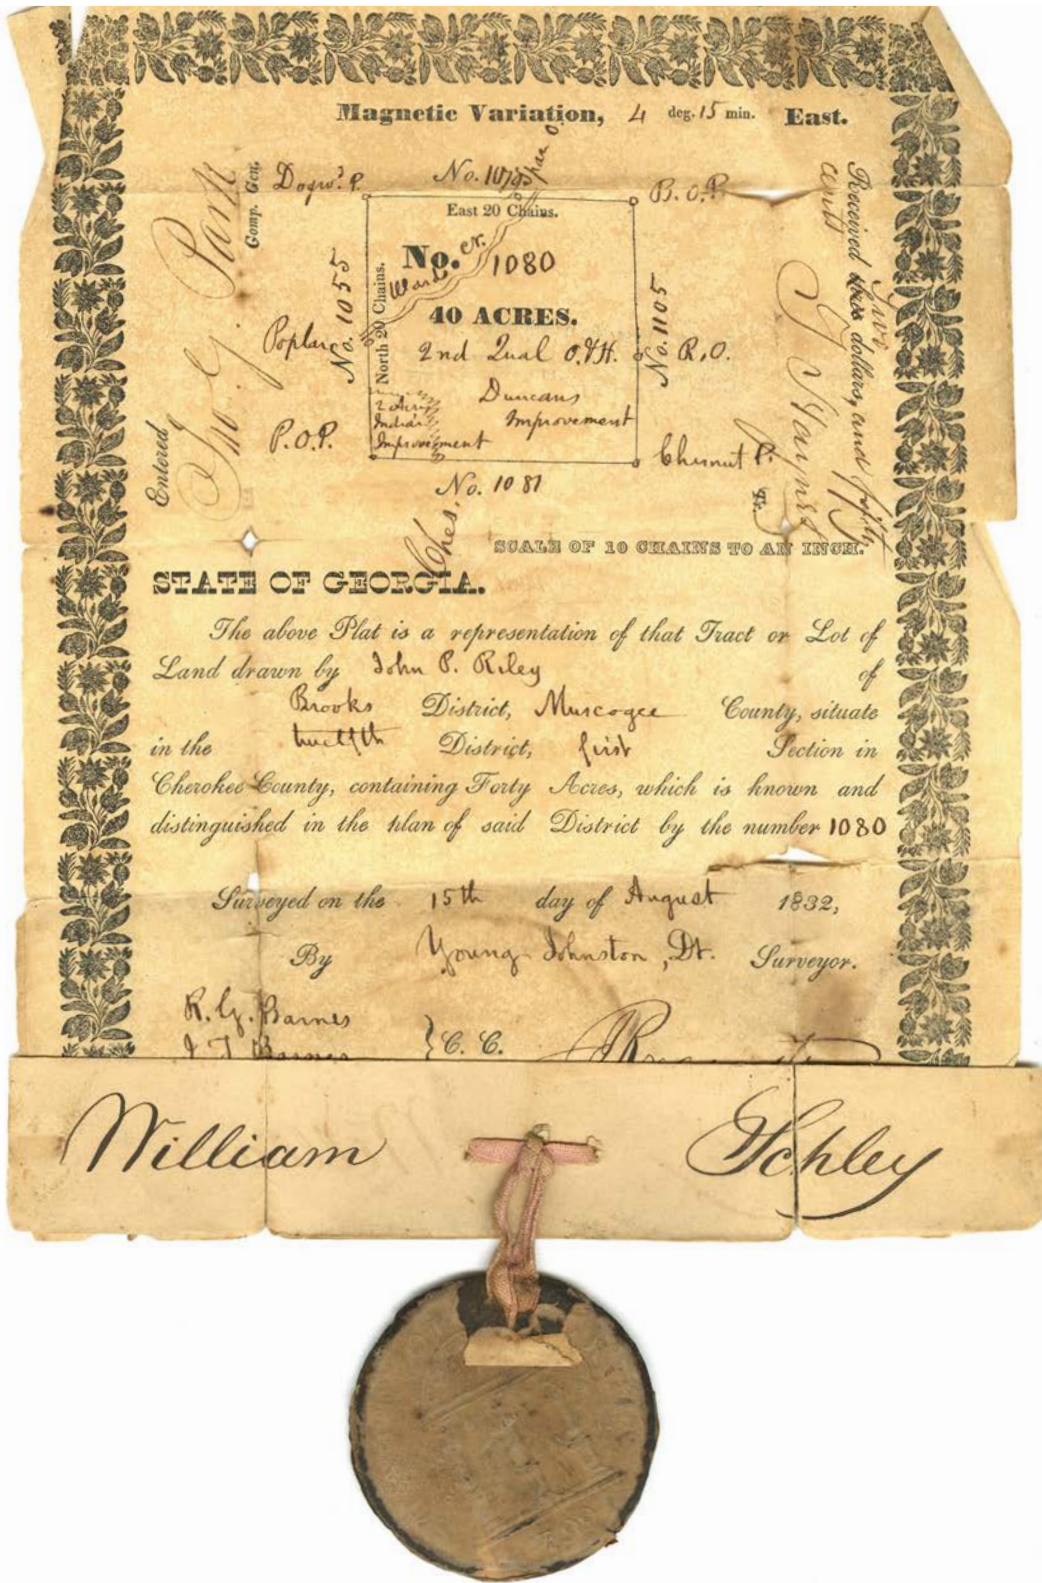 Magnetic Variation, 4 deg. 15 min. East.
Dogw.d P.
No. 1079
B. O. P.
East 20 Chains.
No. 1080
40 ACRES.
2nd Qual O. & H.
Duncans
Improvement
2 Acres
Indian
Improvement
North 20 Chains.
No. 1055
Poplar
P.O.P.
No. 1105
R. O.
Chesnut P.
No. 1081
Ches.
Entered
Jno. G. Park
Comp. Gen.
Received two dollars, and fifty
cents
J Haynes
Tr.
SCALE OF 10 CHAINS TO AN INCH.
STATE OF GEORGIA.
The above Plat is a representation of that Tract or Lot of
Land drawn by John P. Riley of
Brooks District, Muscogee County, situate
in the twelfth District, first Section in
Cherokee County, containing Forty Acres, which is known and
distinguished in the plan of said District by the number 1080
Surveyed on the 15th day of August 1832,
By Young Johnston, Dt. Surveyor.
R. G. Barnes
J T Barnes } C. C.
William Schley